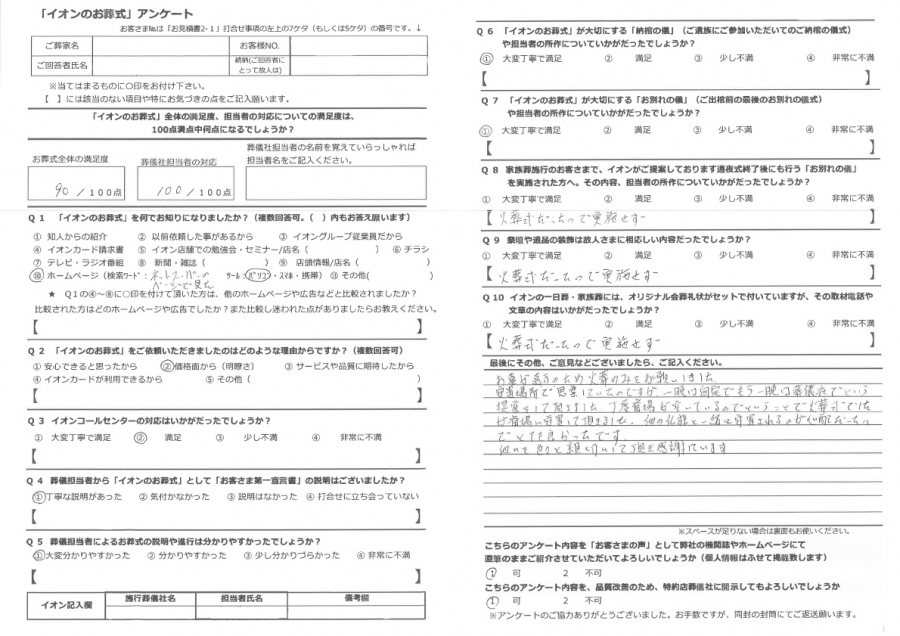 「イオンのお葬式」アンケート
お客さま№は「お見積書2-1」打合せ事項の左上の7ケタ（もしくは5ケタ）の番号です。↓
ご葬家名
お客様NO.
ご回答者氏名
続柄(ご回答者に
とって故人は)
※当てはまるものに○印をお付け下さい。
【　】には該当のない項目や特にお気づきの点をご記入願います。
「イオンのお葬式」全体の満足度、担当者の対応についての満足度は、
100点満点中何点になるでしょうか？
お葬式全体の満足度
90 / 100点
葬儀社担当者の対応
100 / 100点
葬儀社担当者の名前を覚えていらっしゃれば
担当者名をご記入ください。
Q 1 「イオンのお葬式」を何でお知りになりましたか？（複数回答可。（　）内もお答え願います）
① 知人からの紹介　② 以前依頼した事があるから　③ イオングループ従業員だから
④ イオンカード請求書　⑤ イオン店舗での勉強会・セミナー/店名（　）　⑥ チラシ
⑦ テレビ・ラジオ番組　⑧ 新聞・雑誌（　）　⑨ 店頭情報/店名（　）
⑩ ホームページ（検索ワード：ネットスーパーの　ツール：パソコン・スマホ・携帯）⑪ その他(　)
ページで見た
★ Q1の④～⑧に○印を付けて頂いた方は、他のホームページや広告などと比較されましたか？
比較された方はどのホームページや広告でしたか？また比較し迷われた点がありましたらお教えください。
【　】
Q 2 「イオンのお葬式」をご依頼いただきましたのはどのような理由からですか？（複数回答可）
① 安心できると思ったから　② 価格面から（明瞭さ）　③ サービスや品質に期待したから
④ イオンカードが利用できるから　⑤ その他（　）
【　】
Q 3 イオンコールセンターの対応はいかがだったでしょうか？
① 大変丁寧で満足　②　満足　③　少し不満　④　非常に不満
【　】
Q 4 葬儀担当者から「イオンのお葬式」として「お客さま第一宣言書」の説明はございましたか？
① 丁寧な説明があった　② 気付かなかった　③ 説明はなかった　④ 打合せに立ち会っていない
【　】
Q 5 葬儀担当者によるお葬式の説明や進行は分かりやすかったでしょうか？
① 大変分かりやすかった　② 分かりやすかった　③ 少し分かりづらかった　④ 非常に不満
【　】
イオン記入欄
施行葬儀社名
担当者氏名
備考欄
Q 6 「イオンのお葬式」が大切にする「納棺の儀」（ご遺族にご参加いただいてのご納棺の儀式）
や担当者の所作についていかがだったでしょうか？
① 大変丁寧で満足　②　満足　③　少し不満　④　非常に不満
【　】
Q 7 「イオンのお葬式」が大切にする「お別れの儀」（ご出棺前の最後のお別れの儀式）
や担当者の所作についていかがだったでしょうか？
① 大変丁寧で満足　②　満足　③　少し不満　④　非常に不満
【　】
Q 8 家族葬施行のお客さまで、イオンがご提案しております通夜式終了後にも行う「お別れの儀」
を実施された方へ。その内容、担当者の所作についていかがだったでしょうか？
① 大変丁寧で満足　②　満足　③　少し不満　④　非常に不満
【火葬式だったので実施せず　】
Q 9 祭壇や遺品の装飾は故人さまに相応しい内容だったでしょうか？
① 大変丁寧で満足　②　満足　③　少し不満　④　非常に不満
【火葬式だったので実施せず　】
Q 10 イオンの一日葬・家族葬には、オリジナル会葬礼状がセットで付いていますが、その取材電話や
文章の内容はいかがだったでしょうか？
① 大変丁寧で満足　②　満足　③　少し不満　④　非常に不満
【火葬式だったので実施せず　】
最後にその他、ご意見などございましたら、ご記入ください。
お墓が遠方のため火葬のみをお願いしました
安置場所で思案していたのですが、一晩は自宅でもう一晩は葬儀社でという
提案をして頂きました。丁度斎場が空いているのでということで火葬式でしたが
斎場に安置して頂きました。他の仏様と一緒に安置されるのが心配だったの
でとても良かったです。
他にも色々と親切にして頂き感謝しています
※スペースが足りない場合は裏面もお使いください。
こちらのアンケート内容を「お客さまの声」として弊社の機関誌やホームページにて
直筆のままご紹介させていただいてよろしいでしょうか（個人情報はふせて掲載致します）
1　可　2　不可
こちらのアンケート内容を、品質改善のため、特約店葬儀社に開示してもよろしいでしょうか
1　可　2　不可
※アンケートのご協力ありがとうございました。お手数ですが、同封の封筒にてご返送願います。